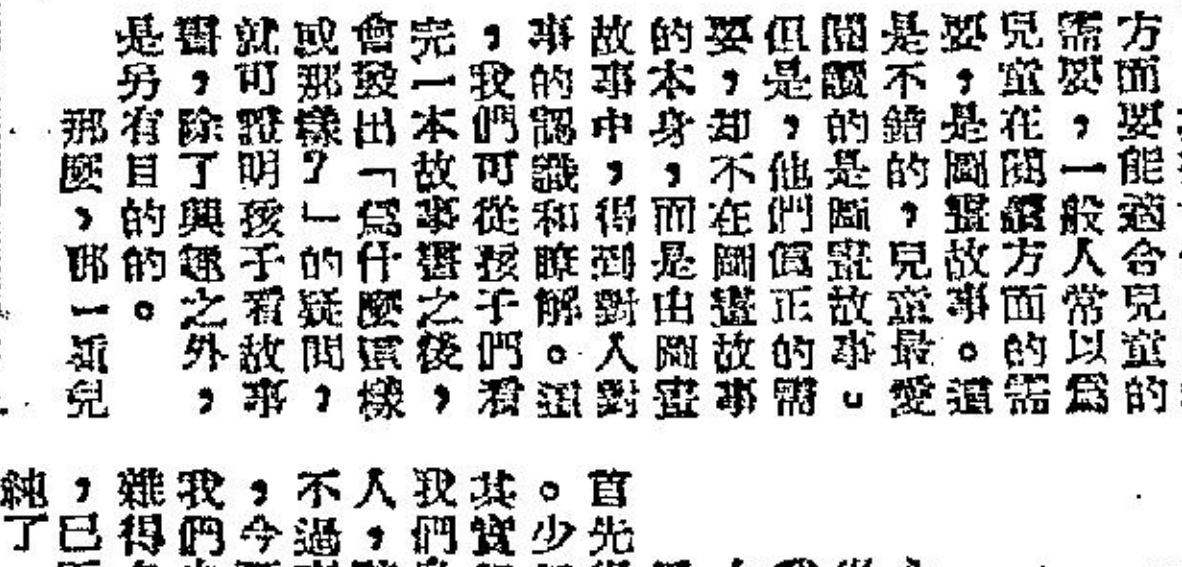 方面要能適合兒童的
需要,一般人常以爲
兒童在閱讀方面的需
要,是圖畫故事。這
是不錯的,兒童最愛
閱讀的是圖畫故事。
但是,他們眞正的需
要,却不在圖畫故事
的本身,而是由圖畫
故事中,得到對人對
事的認識和瞭解。這
,我們可從孩子們看
完一本故事書之後,
會發出「爲什麼這樣
或那樣?」的疑問,
就可證明孩子看故事
書,除了興趣之外,
是另有目的的。
那麼,那一類兒
首先
。少
其實
我們
人,
不過
,今
我們
難得
,已
純了